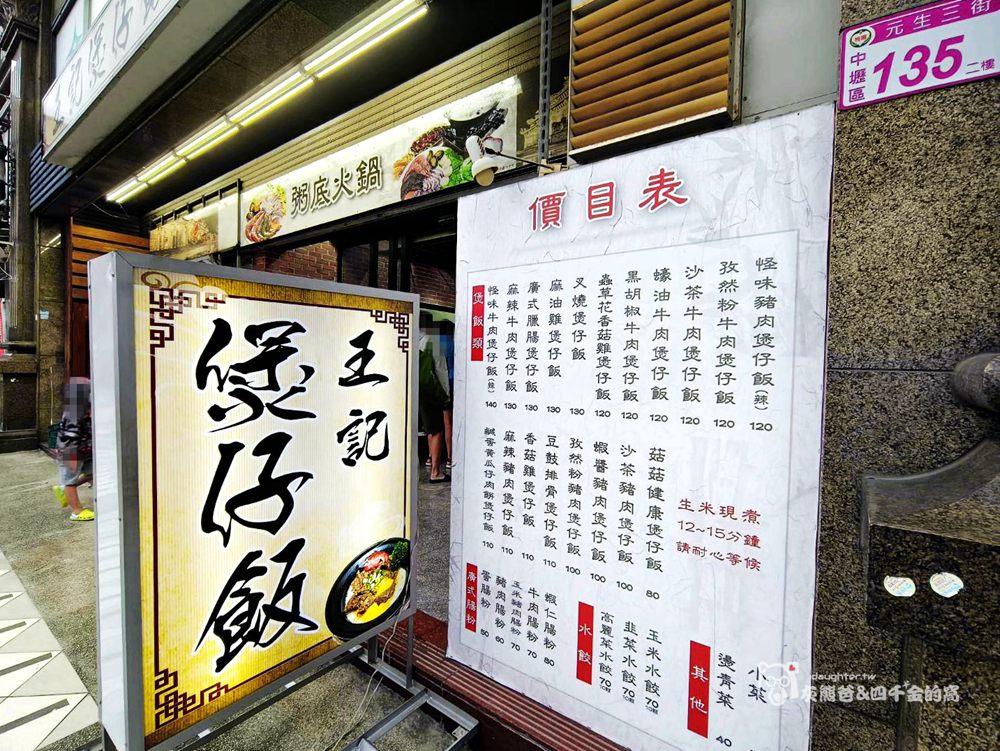 王記煲仔
粥底火鍋
元生三街
中壢區
135
二樓
王記
煲仔飯
價目表
煲飯類
怪味牛肉煲仔飯(辣) 140
麻辣牛肉煲仔飯 130
廣式臘腸煲仔飯 130
麻油雞煲仔飯 130
叉燒煲仔飯 130
蟲草花香菇雞煲仔飯 120
黑胡椒牛肉煲仔飯 120
蠔油牛肉煲仔飯 120
沙茶牛肉煲仔飯 120
孜然粉牛肉煲仔飯 120
怪味豬肉煲仔飯(辣) 120
鹹蛋黃瓜仔肉餅煲仔飯 110
麻辣豬肉煲仔飯 110
香菇雞煲仔飯 110
豆鼓排骨煲仔飯 110
孜然粉豬肉煲仔飯 100
蝦醬豬肉煲仔飯 100
沙茶豬肉煲仔飯 100
菇菇健康煲仔飯 80
生米現煮
12~15分鐘
請耐心等候
廣式腸粉
蛋腸粉 50
豬肉腸粉 60
玉米豬肉腸粉 70
牛肉腸粉 70
蝦仁腸粉 80
水餃
高麗菜水餃 70 10顆
韮菜水餃 70 10顆
玉米水餃 70 10顆
其他
燙青菜 40
小菜
daughter.tw
灰熊爸&四千金的窩